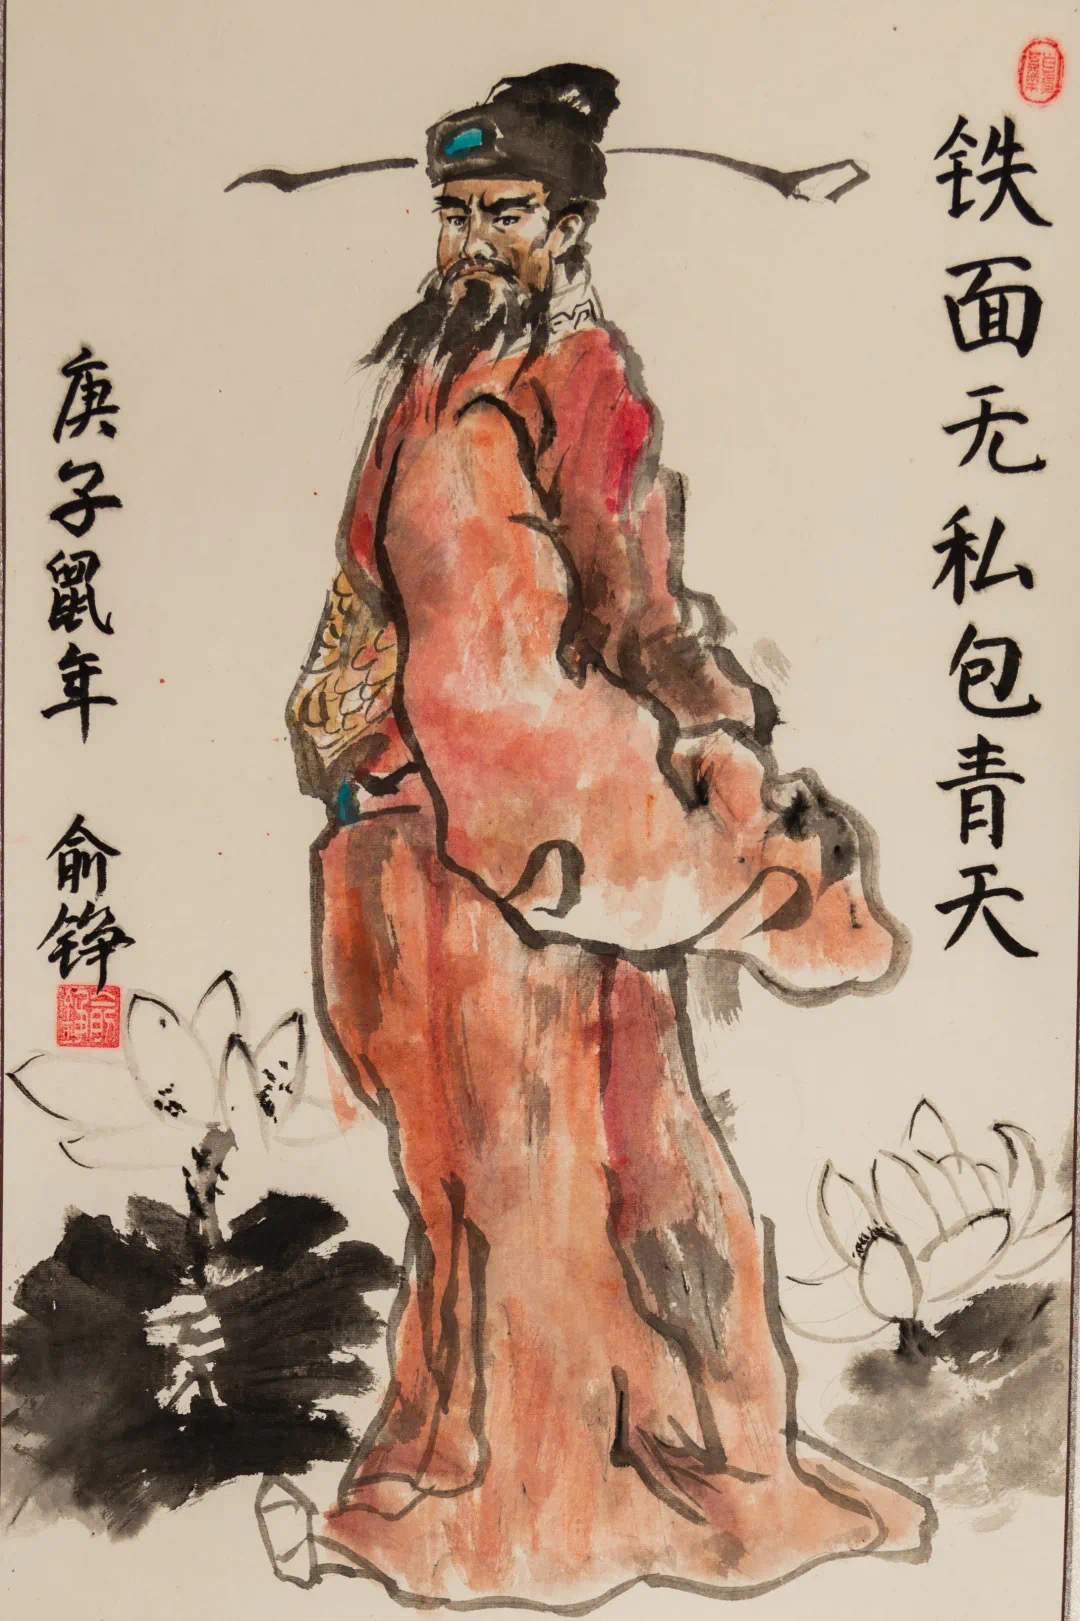 铁面无私包青天
庚子鼠年 俞铮